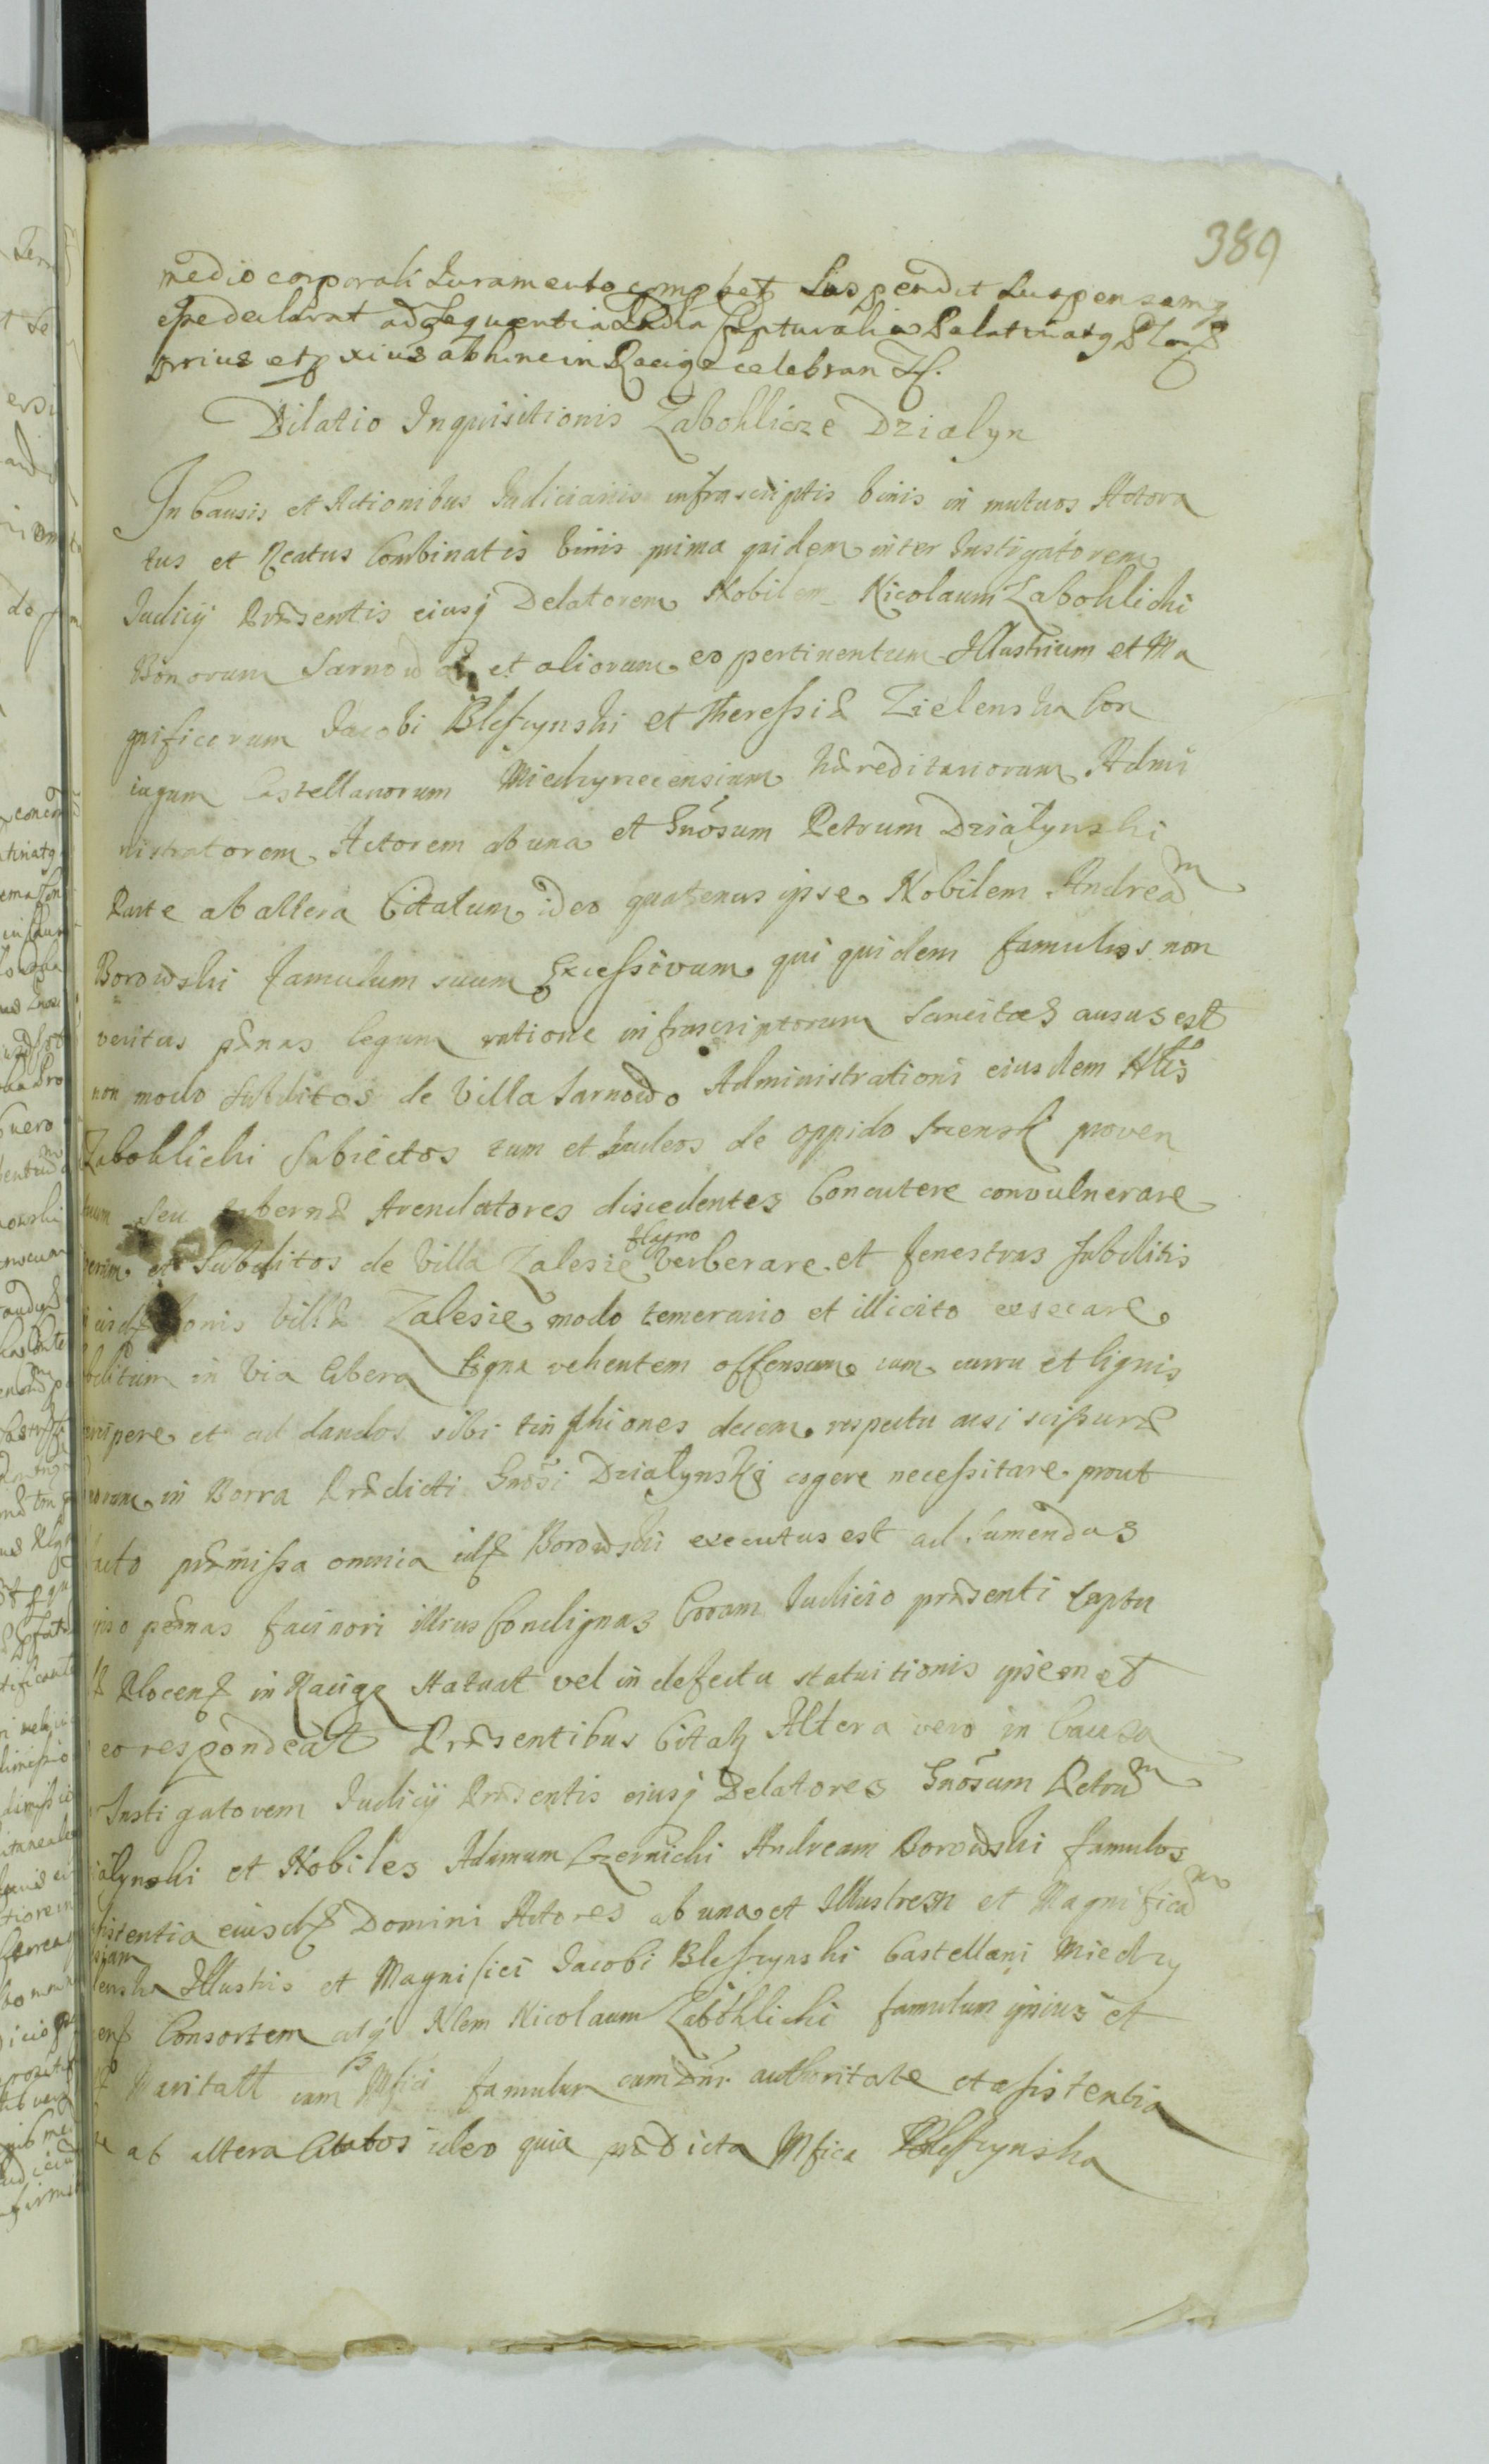 389
medio corporali Juramento comp let Suspendit Suspensamq
esse declarat ad Sequentia Judia Capturalia Palatinatq Plocen
prius et pxius abhinc in Raciąz celebran
Dilatio Inquisitionis Zabokliczc Dzialyn
In Causis et Actionibus Judiciariis infrascriptis binis in mutuos Actora
tus et Reatus Combinatis binis prima quidem inter Instigatorem
Judicij Præsentis eiusq Delatorem Nobilem Nicolaum Zaboklicki
Bonorum Sarnowo et aliorum eo pertinentum Illustrium et Ma
gnificorum Jacobi Blesczynski et Theressiæ Zielenska Con
iugum Castellanorum Miedzyrzecensium hæreditariorum Admi
nistratorem Actorem ab una et Gnosum Petrum Dzialynski
Parte ab altera Citatum ideo quatenus ipse Nobilem Andreā m
Borowski famulum suum Excessivum qui quidem famulus non
veritus pænas legum ratione infrascriptorum sancitas ausus est
non modo Subditos de Villa Sarnowo Administrationi eiusdem Nlis
Zaboklicki Subiectos tum et Judeos de oppido Szensk proven
tuum seu tabernæ Arendatores discedentes Concutere convulnerare
verum et Subditos de Villa Zalesie flagro verberare et fenestras Subditis
eiusd onis Villæ Zalesie modo temerario et illicito exsecare
bditum in Via libera ligna vehentem offensum cum curru et lignis
ripere et ad dandos sibi tinphiones decem respectu acsi scissuræ
norum in Borra Prædicti Gnosi Dzialynski cogere necessitare prout
facto præmissa omnia id Borowski executus est ad sumendas
iso pænas facinori illius Condignas Coram Judicio præsenti captu
Plocen in Raciąz statuat vel in defectu statuitionis ipsemet
eo respondeat Præsentibus Citatq Altera vero in Causa
Instigatorem Judicij Præsentis eiusq Delatores Gnosum Petrū m
ialynski et Nobiles Adamum Czernicki Andream Borowski famulos
sistentia eiusd Domini Actores ab una et Illustrem et Magnificā m
siam
lenska Illustris et Magnifici Jacobi Blesczynski Castellani Miedzy
cens Consortem atq Nlem Nicolaum Zaboklicki famulum ipsius et
Maritali cum Mfici famulum cum Dnr authoritate et assistentia
te ab altera Citatos ideo quia prædicta Mfica Blesczynska